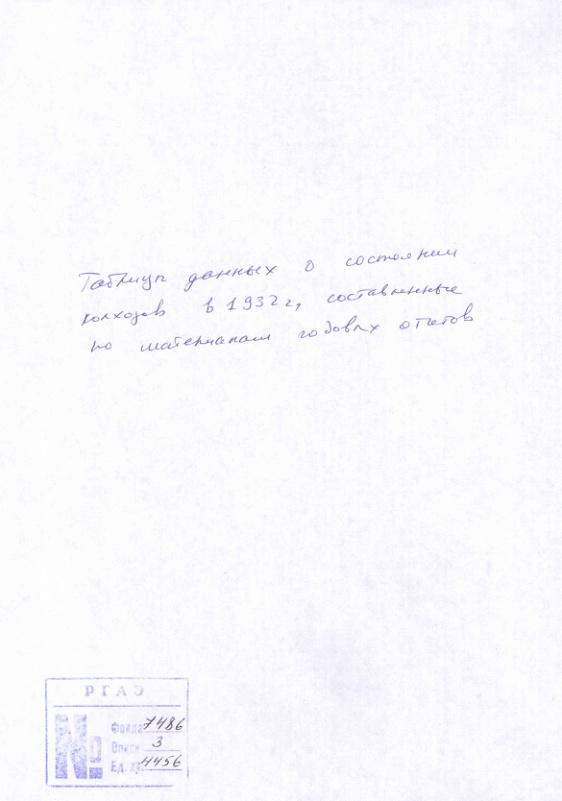 Таблицы данных о состоянии
колхозов в 1932 г, составленные
по материалам годовых отчетов
РГАЭ
№
Фонд 7486
Опись 3
Ед. хр. 4456